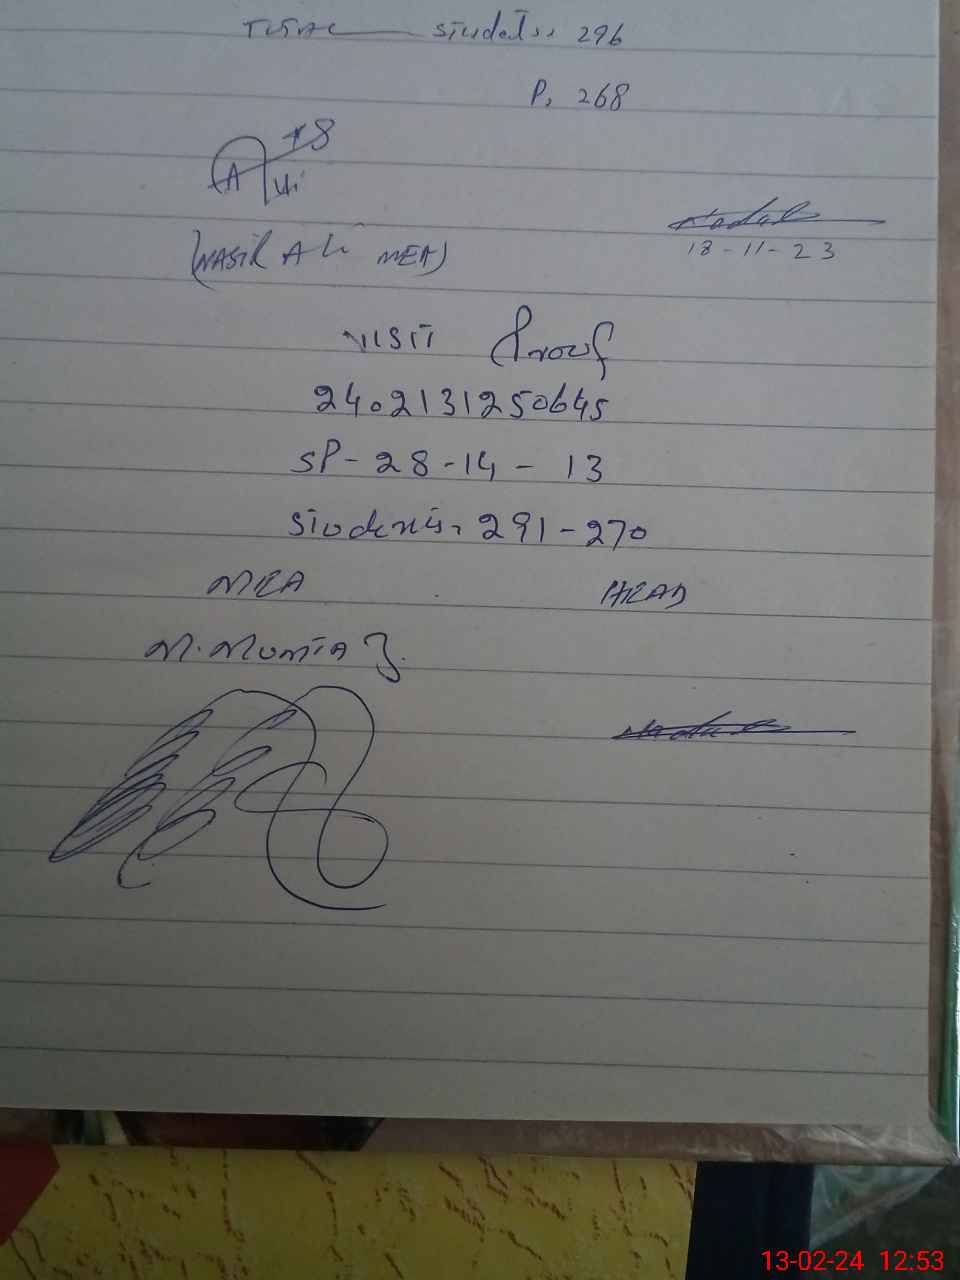 TOTAL students. 296
P. 268
(NASIR ALI MEA)
18-11-23
VISIT Proof
2402131250645
SP-28-14-13
Students. 291-270
MEA HEAD
M. MUMTAZ.
13-02-24 12:53